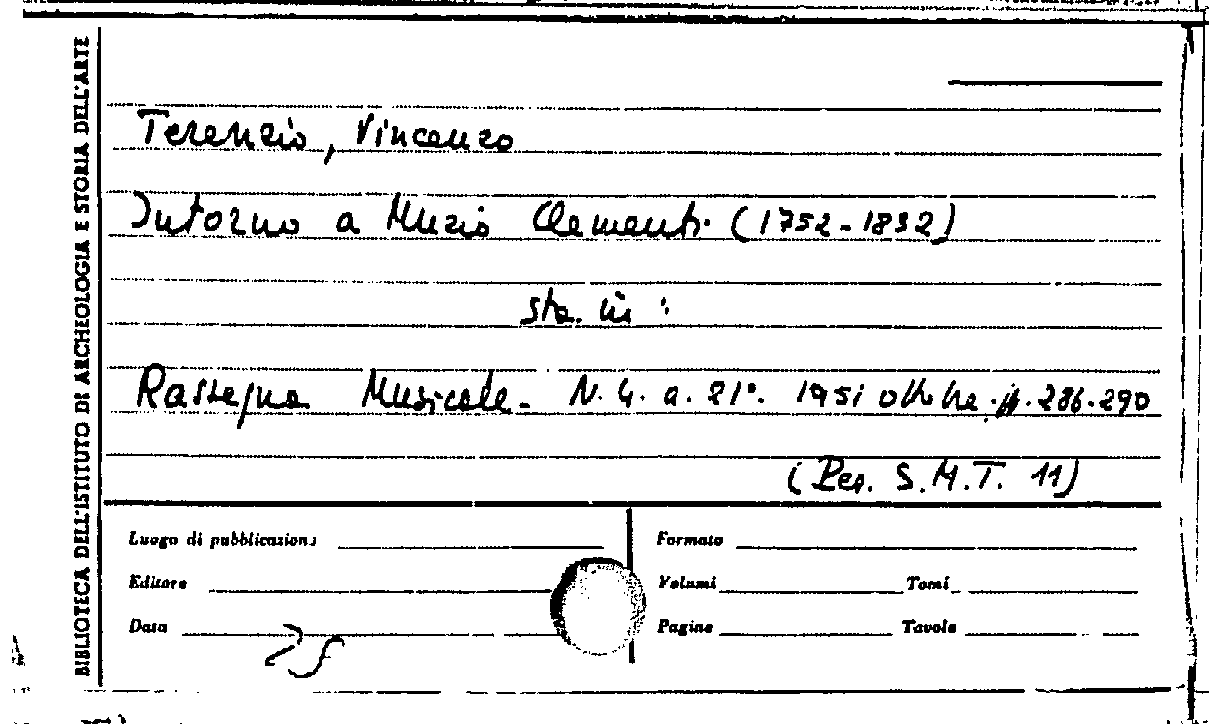 BIBLIOTECA DELL'ISTITUTO DI ARCHEOLOGIA E STORIA DELL'ARTE
Terenzio, Vincenzo
Intorno a Muzio Clementi. (1752-1832)
sta. in :
Rassegna Musicale - N. 4. a. 21°. 1951 ottobre. pp. 286-290
(Per. S.M.T. 11)
Luogo di pubblicazione
Formato
Editore
Volumi Tomi
Data
Pagine Tavole